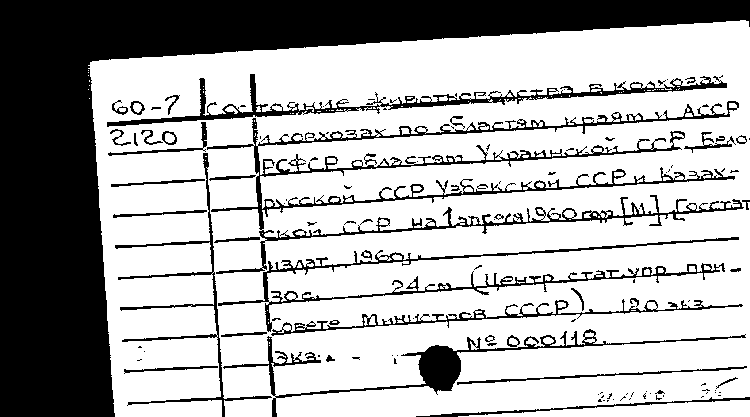 60-7 Состояние животноводства в колхозах
2120 и совхозах по областям, краям и АССР
РСФСР, областям Украинской ССР, Бело-
русской ССР, Узбекской ССР и Казах-
ской ССР на 1 апреля 1960 года [М.], Госстат-
издат, 1960г.
30с. 24см (Центр. стат. упр. при
Совете Министров СССР). 120 экз.
Экз. № 000118.